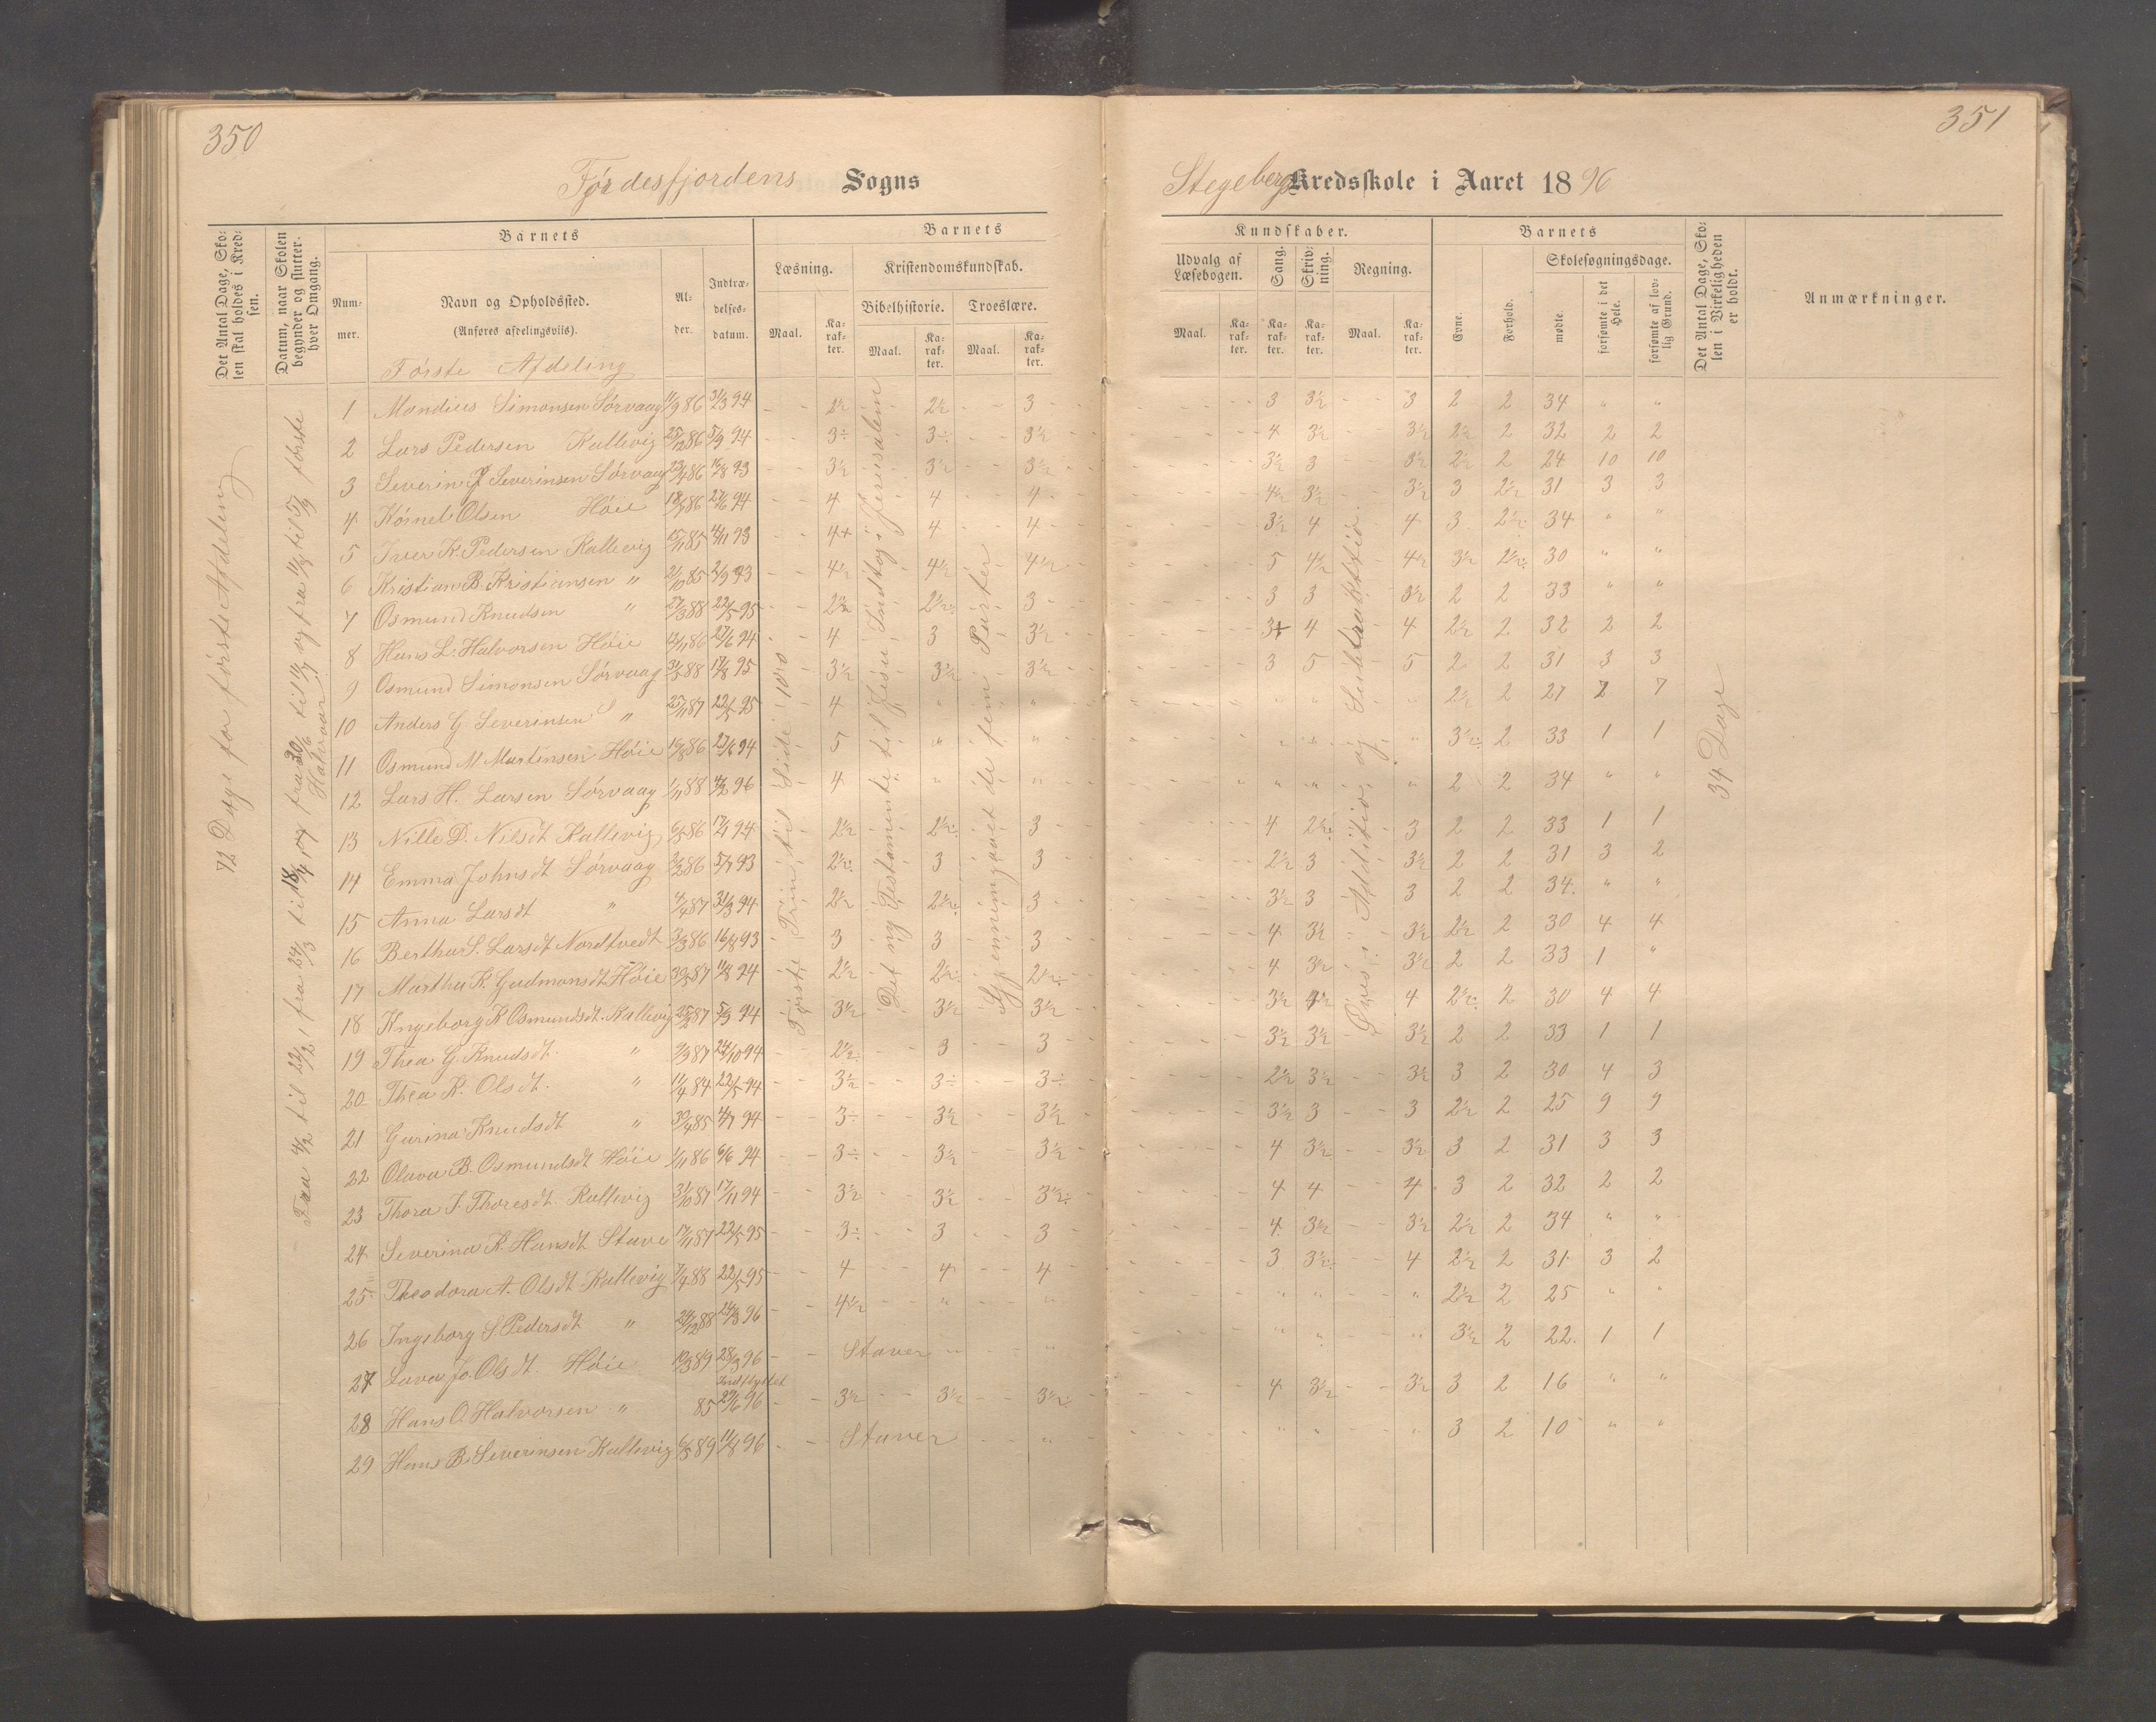 350
Førdesfjordens Sogns
Det Antal Dage, Sko-
len skal holdes i Kred-
sen.
Datum, naar Skolen
begynder og slutter
hver Omgang.
Barnets
Num-
mer.
Navn og Opholdssted.
(Anføres afdelingsviis).
Al-
der.
Indtræ-
delses-
datum.
Barnets
Læsning.
Kristendomskundskab.
Maal.
Ka-
rak-
ter.
Bibelhistorie.
Troeslære.
Maal.
Ka-
rak-
ter.
Maal.
Ka-
rak-
ter.
Første Afdeling
72 Dage for første Afdeling
Første Trin til Side 100
Det ny Testamente til Jesu Indtog i Jerusalem
Gjennemgaaet de fem Parter
1 Mandius Simonsen Sørvaag 11/9 86 31/3 94 2½ 2½ 3
2 Lars Pedersen Kallevig 25/12 86 5/9 94 3÷ 3÷ 3½
3 Severin Severinsen Sørvaag 86 93 3½ 3½ 3½
4 Kornel Olsen Høie 86 27/6 94 4 4 4
5 Iver K. Pedersen Kallevig 15/11 85 4/11 93 4+ 4 4
6 Kristian B. Kristiansen " 2/10 85 2/9 93 4½ 4½ 4½
7 Osmund Knudsen " 27/3 88 22/5 95 2½ 2½ 3
8 Hans L. Halvorsen Høie 86 27/6 94 4 3 3½
9 Osmund Simonsen Sørvaag 88 17/8 95 3½ 3½ 3½
10 Anders G. Severinsen " 23/11 87 22/5 95 4 " "
11 Osmund M Martinsen Høie 86 27/6 94 5 " "
12 Lars H. Larsen Sørvaag 1/11 88 4/2 96 4 " "
13 Nille D. Nilsdt Kallevig 86 94 2½ 2½ 3
14 Emma Johnsdt Sørvaag 86 5/7 93 2½ 3 3
15 Anna Larsdt " 4/4 87 31/3 94 2½ 2½ 3
16 Bertha S. Larsdt Nordtvedt 3/3 86 16/8 93 3 3 3
17 Martha R. Gudmonsdt Høie 87 94 2½ 2½ 2½
18 Ingeborg K Osmundsdt. Kallevig 87 5/9 94 3½ 3½ 3½
19 Thea G. Knudsdt. " 87 24/10 94 2½ 3 3
20 Thea K. Olsdt. " 11/4 84 22/5 94 3½ 3÷ 3÷
21 Gurina Knudsdt " 30/4 85 4/7 94 3÷ 3½ 3½
22 Olava B. Osmundsdt Høie 1/11 86 6/6 94 3÷ 3½ 3½
23 Thora J. Thoresdt. Kallevig 31/10 87 17/11 94 3½ 3½ 3½
24 Severina K. Hansdt Stave 17/11 87 22/5 95 3÷ 3 3
25 Theodora A. Olsdt Kallevig 7/4 88 22/5 95 4 4 4
26 Ingeborg S. Pedersdt " 24/12 88 24/3 96 4½ " "
27 Lava Jo. Olsdt. Høie 10/3 89 28/3 96 Staver " "
Indflyttet
28 Hans O. Halvorsen " 85 29/6 96 3½ 3½ 3½
29 Hans B. Severinsen Kallevig 89 11/8 96 Staver "
351
Stegeberg Kredsskole i Aaret 1896
Kundskaber.
Udvalg af
Læsebogen.
Sang.
Skriv-
ning.
Regning.
Maal.
Ka-
rak-
ter.
Ka-
rak-
ter.
Ka-
rak-
ter.
Maal.
Ka-
rak-
ter.
Barnets
Evne.
Forhold.
Skolesøgningsdage.
mødte.
forsømte i det
Hele.
forsømte af lov-
lig Grund.
Det Antal Dage, Sko-
len i Virkeligheden
er holdt.
Anmærkninger.
Øves i Additio og Subtraktio
34 Dage
3 3½ 3 2 2 34 " "
4 3½ 3½ 2½ 2 32 2 2
3½ 3 3½ 2½ 2 24 10 10
4½ 3½ 3½ 3 2½ 31 3 3
3½ 4 4 3 2½ 34 " "
5 4½ 4½ 3½ 2½ 30 " "
3 3 3½ 2 2 33 " "
3+ 4 4 2½ 2 32 2 2
3 5 5 2 2 31 3 3
" " " 2½ 2 27 7 7
" " " 3½ 2 33 1 1
" " " 2 2 34 " "
4 2½ 3 2 2 33 1 1
2½ 3 3½ 2 2 31 3 2
3½ 3 3 2 2 34 " "
4 3½ 3½ 2½ 2 30 4 4
4 3½ 3½ 2 2 33 1 "
3½ 4 2½ 2 30 4 4
3½ 3½ 3½ 2 2 33 1 1
2½ 3½ 3½ 3 2 30 4 3
3½ 3 3 2½ 2 25 9 9
4 3½ 3½ 3 2 31 3 3
4 4 4 3 2 32 2 2
4 3½ 3½ 2½ 2 34 " "
3 3½ 4 2½ 2 31 3 2
" " " 2½ 2 25 " "
" " " 3½ 2 22 1 1
4 3½ 3½ 3 2 16 " "
" " " 3 2 10 " "